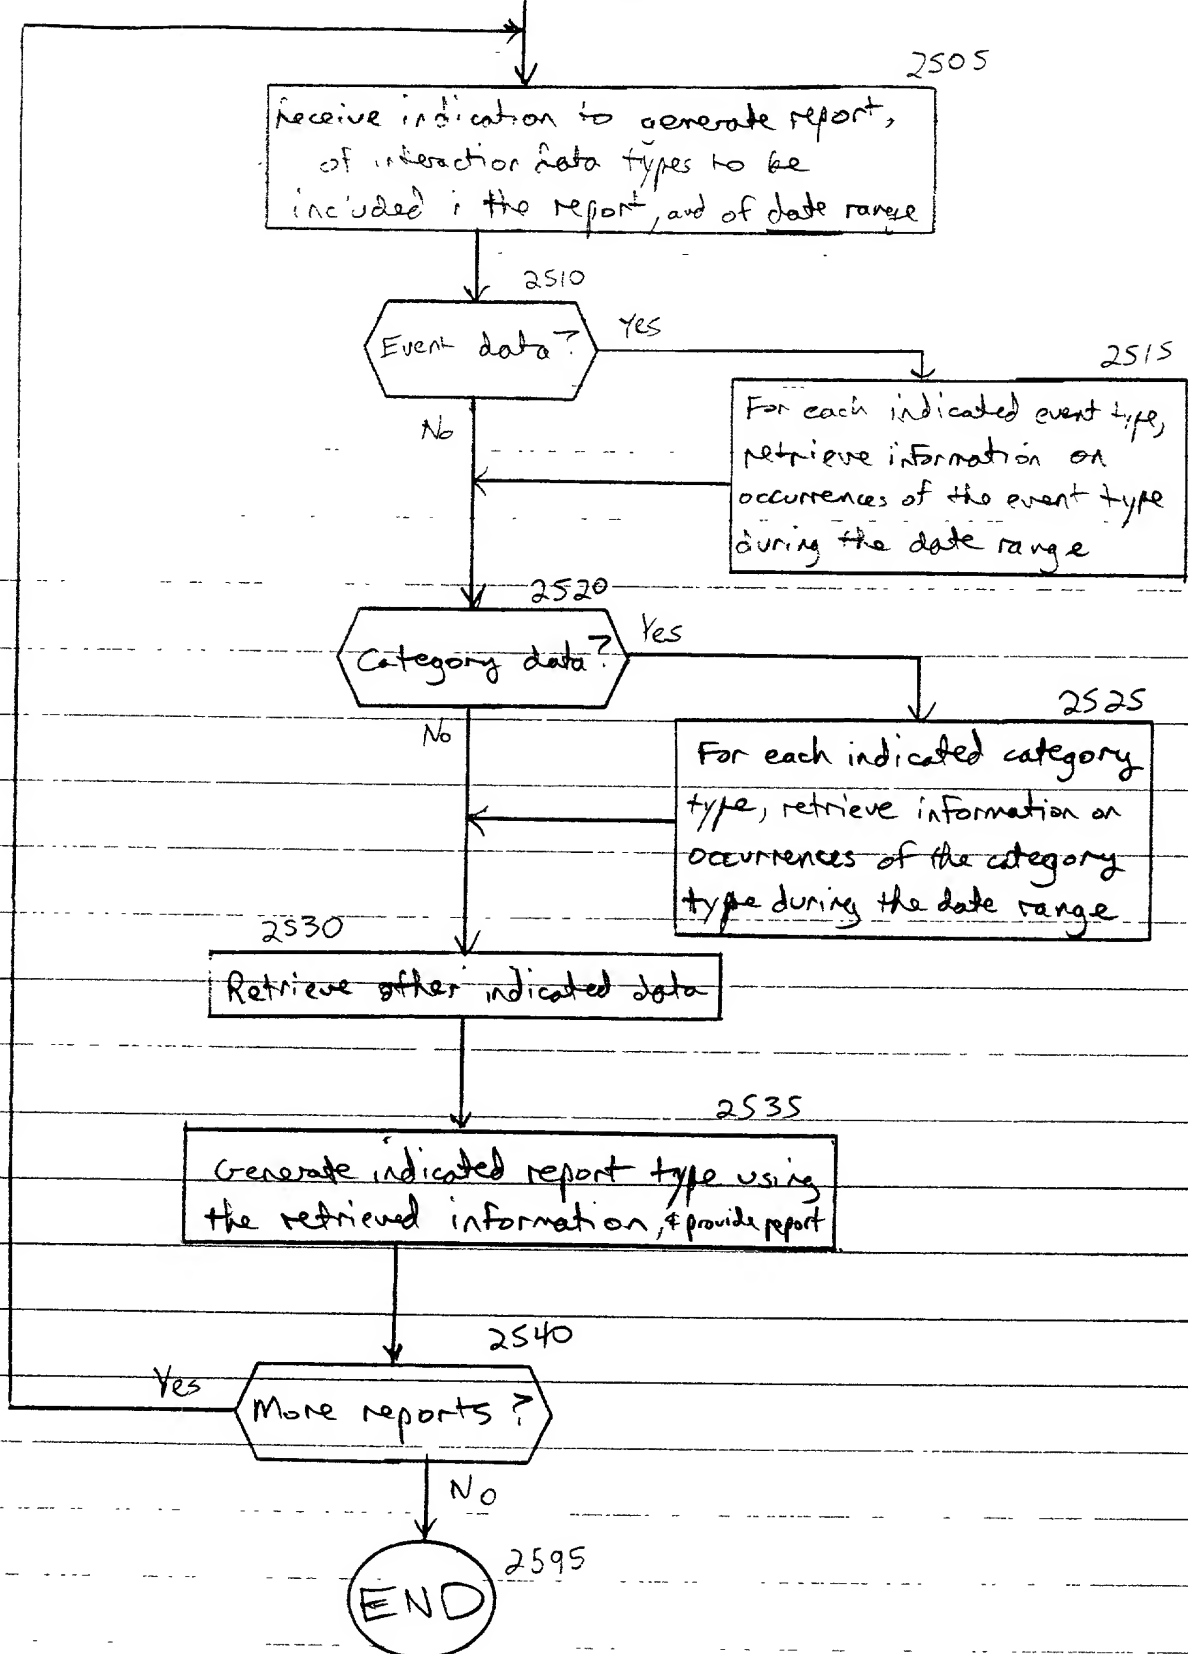 2505
Receive indication to generate report,
of interaction data types to be
included i the report, and of date range
2510
Event data?
Yes
No
2515
For each indicated event type,
retrieve information on
occurrences of the event type
during the date range
2520
Category data?
Yes
No
2525
For each indicated category
type, retrieve information on
occurrences of the category
type during the date range
2530
Retrieve other indicated data
2535
Generate indicated report type using
the retrieved information, & provide report
2540
More reports?
Yes
No
END
2595